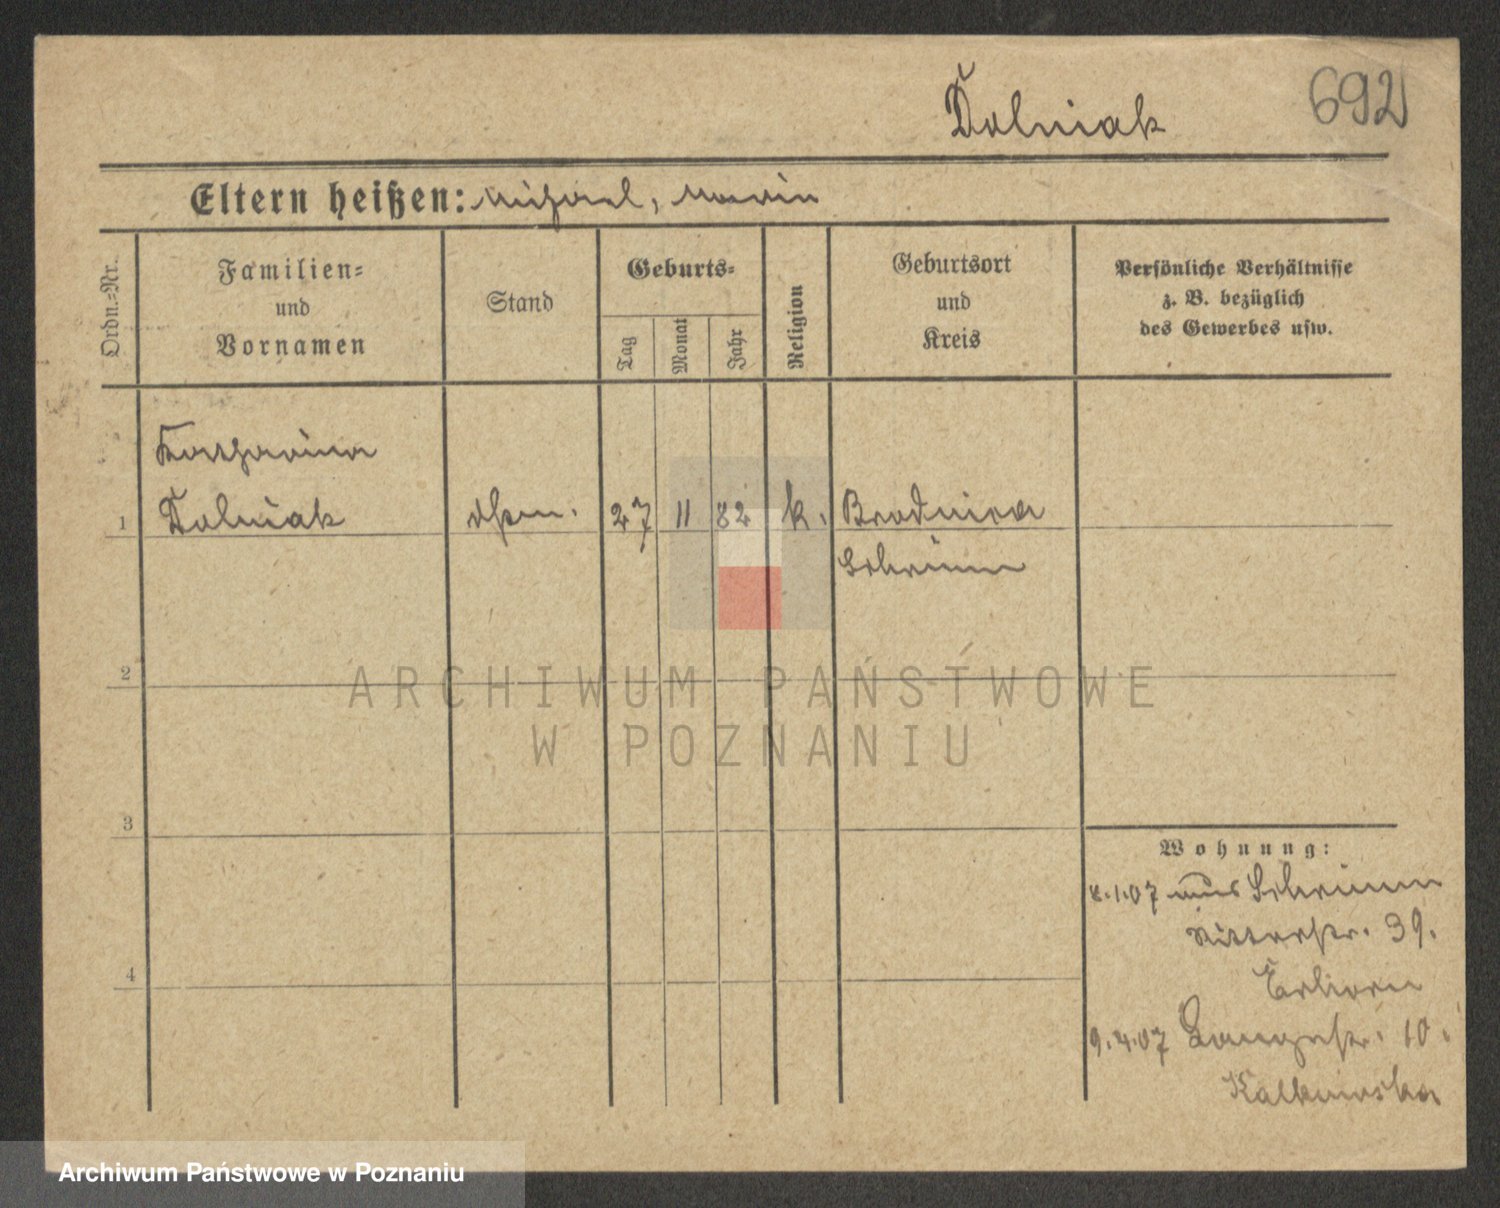 Dolniak
692
Eltern heißen: Michael, Marie
Ordn.=Nr.
Familien=
und
Vornamen
Stand
Geburts=
Tag
Monat
Jahr
Religion
Geburtsort
und
Kreis
Persönliche Verhältnisse
z. B. bezüglich
des Gewerbes usw.
Katharina
1 Dolniak 27 11 82 k. Brodnica
Schrimm
2
3
4
Wohnung:
8.1.07 aus Schrimm
Ritterstr. 39.
9.4.07 Langestr. 10.
ARCHIWUM PAŃSTWOWE
W POZNANIU
Archiwum Państwowe w Poznaniu